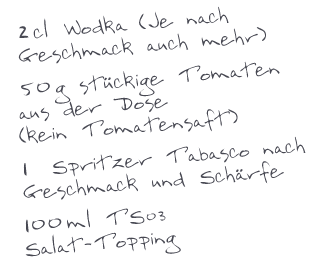 2cl Wodka (Je nach
Geschmack auch mehr)
50g stückige Tomaten
aus der Dose
(kein Tomatensaft)
1 Spritzer Tabasco nach
Geschmack und Schärfe
100ml TSO3
Salat-Topping